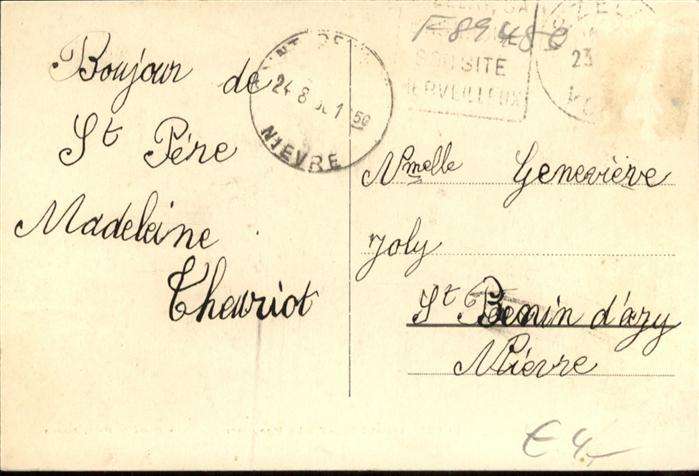 Boujour de
St Père
Madeleine
Theuriot
24 8
50
NIEVRE
F89480
SON SITE
MERVEILLEUX
23
Mmelle Geneviève
Joly
St Benin d'azy
Nièvre
€ 4.-